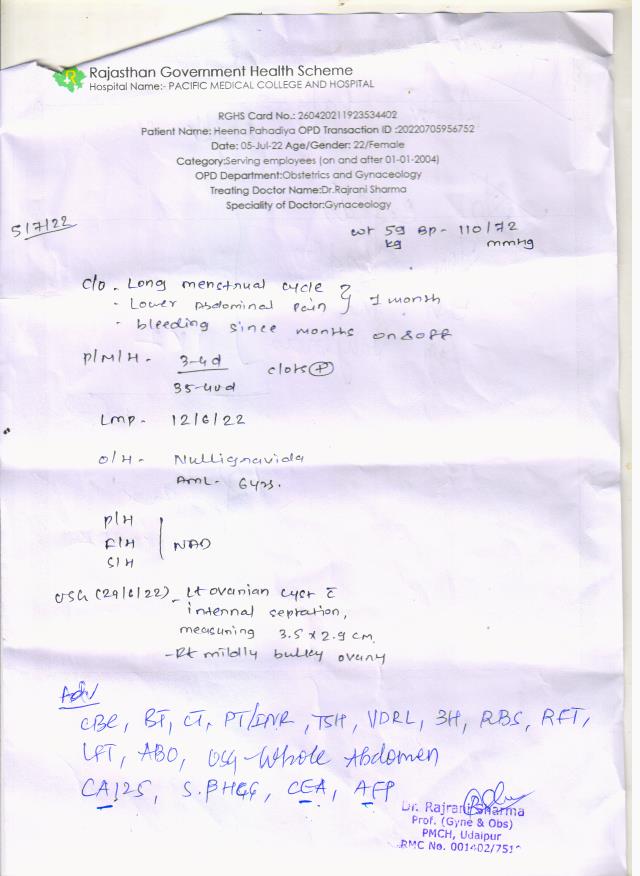 Rajasthan Government Health Scheme
Hospital Name:- PACIFIC MEDICAL COLLEGE AND HOSPITAL
RGHS Card No.: 260420211923534402
Patient Name: Heena Pahadiya OPD Transaction ID :20220705956752
Date: 05-Jul-22 Age/Gender: 22/Female
Category:Serving employees (on and after 01-01-2004)
OPD Department:Obstetrics and Gynaceology
Treating Doctor Name:Dr.Rajrani Sharma
Speciality of Doctor:Gynaceology
5/7/22
wt 59 kg BP - 110/72 mmHg
C/o . Long menstrual cycle
· Lower Abdominal pain } 1 month
· bleeding since months on & off
P/M/H - 3-4d clots +
35-40d
Lmp - 12/6/22
O/H - Nulligravida
AML - 6yrs.
P/H
F/H NAD
S/H
USG (29/6/22) - Lt ovarian cyst c̄
internal septation,
measuring 3.5 x 2.9 cm
- Rt mildly bulky ovary
Adv
CBC, BT, CT, PT/INR, TSH, VDRL, 3H, RBS, RFT,
LFT, ABO, USG - Whole Abdomen
CA125, S. BHCG, CEA, AFP
Dr. Rajrani Sharma
Prof. (Gyne & Obs)
PMCH, Udaipur
RMC No. 001402/751